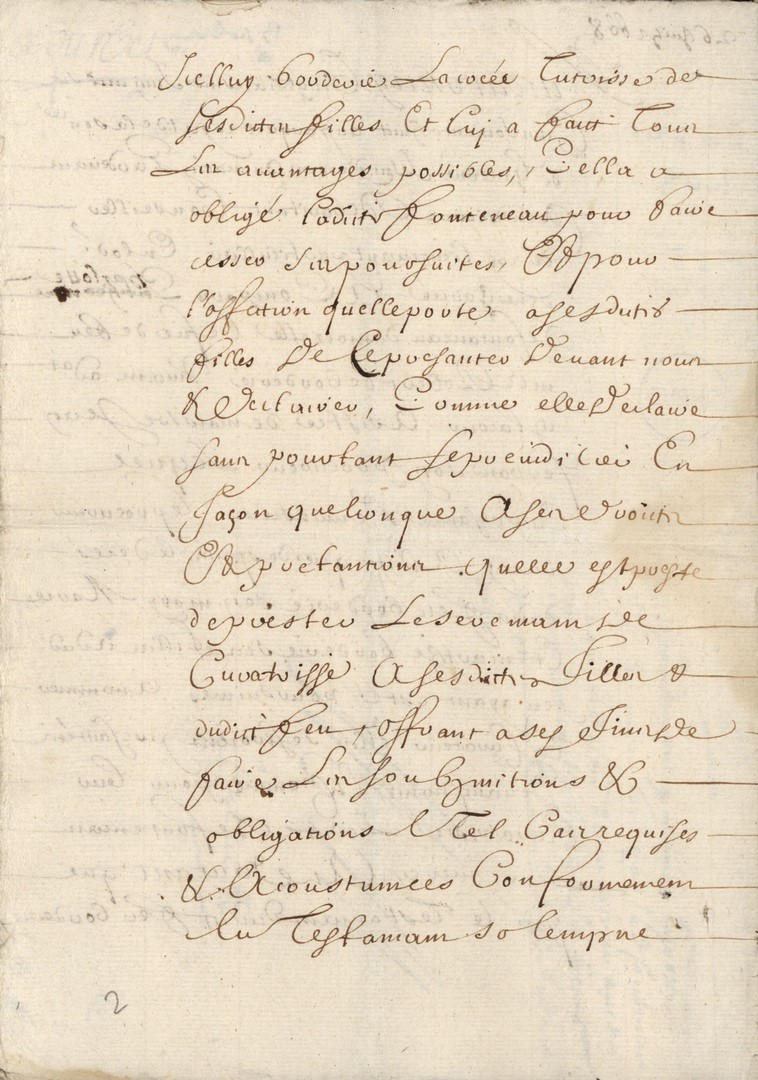 Icelluy Bouderie La créé Tutrisse de
sesdittes filles Et luy a faict Tous
Les auantages possibles, Cella a
obligé Ladicte fonteneau pour faire
cesser ses poursuittes, Et pour
l'affection quelle porte a sesdittes
filles De se presanter Deuant nous
& Declairer, Comme elle Declaire
sans pourtant se preiudicier En
façon quelconque a ses Droits
Et pretantions quelle est preste
de prester Le seremant de
Curatrisse a sesdittes filles &
dudict feu, offrant a ses fins de
faire Les soubzmitions &
obligations En Tel Cas requises
& Acoustumées Conformemem
Au Testamam solempne
2